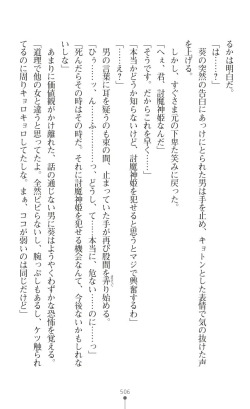 るかは明白だ。
「は……？」
　葵の突然の告白にあっけにとられた男は手を止め、キョトンとした表情で気の抜けた声
を上げる。
　しかし、すぐさま元の下卑た笑みに戻った。
「へぇ、君、討魔神姫なんだ」
「そうです。だからこれを早く……」
「本当かどうか知らないけど、討魔神姫を犯せると思うとマジで興奮するわ」
「……え？」
　男の言葉に耳を疑うのも束の間、止まっていた手が再び股間を弄り始める。
「ひぅ……ッ、ん……ふ、……っ、どうし、て……本当に、危ない……のに……っ」
「死んだらその時はその時だ。それに討魔神姫を犯せる機会なんて、今後ないかもしれな
いしな」
　あまりに価値観がかけ離れた、話の通じない男に葵はようやくわずかな恐怖を覚える。
「道理で他の女と違うと思ったよ。全然ビビらないし、腕っぷしもあるし、ケツ触られ
てるのに周りキョロキョロしてたしな。まぁ、ココが弱いのは同じだけど」
506